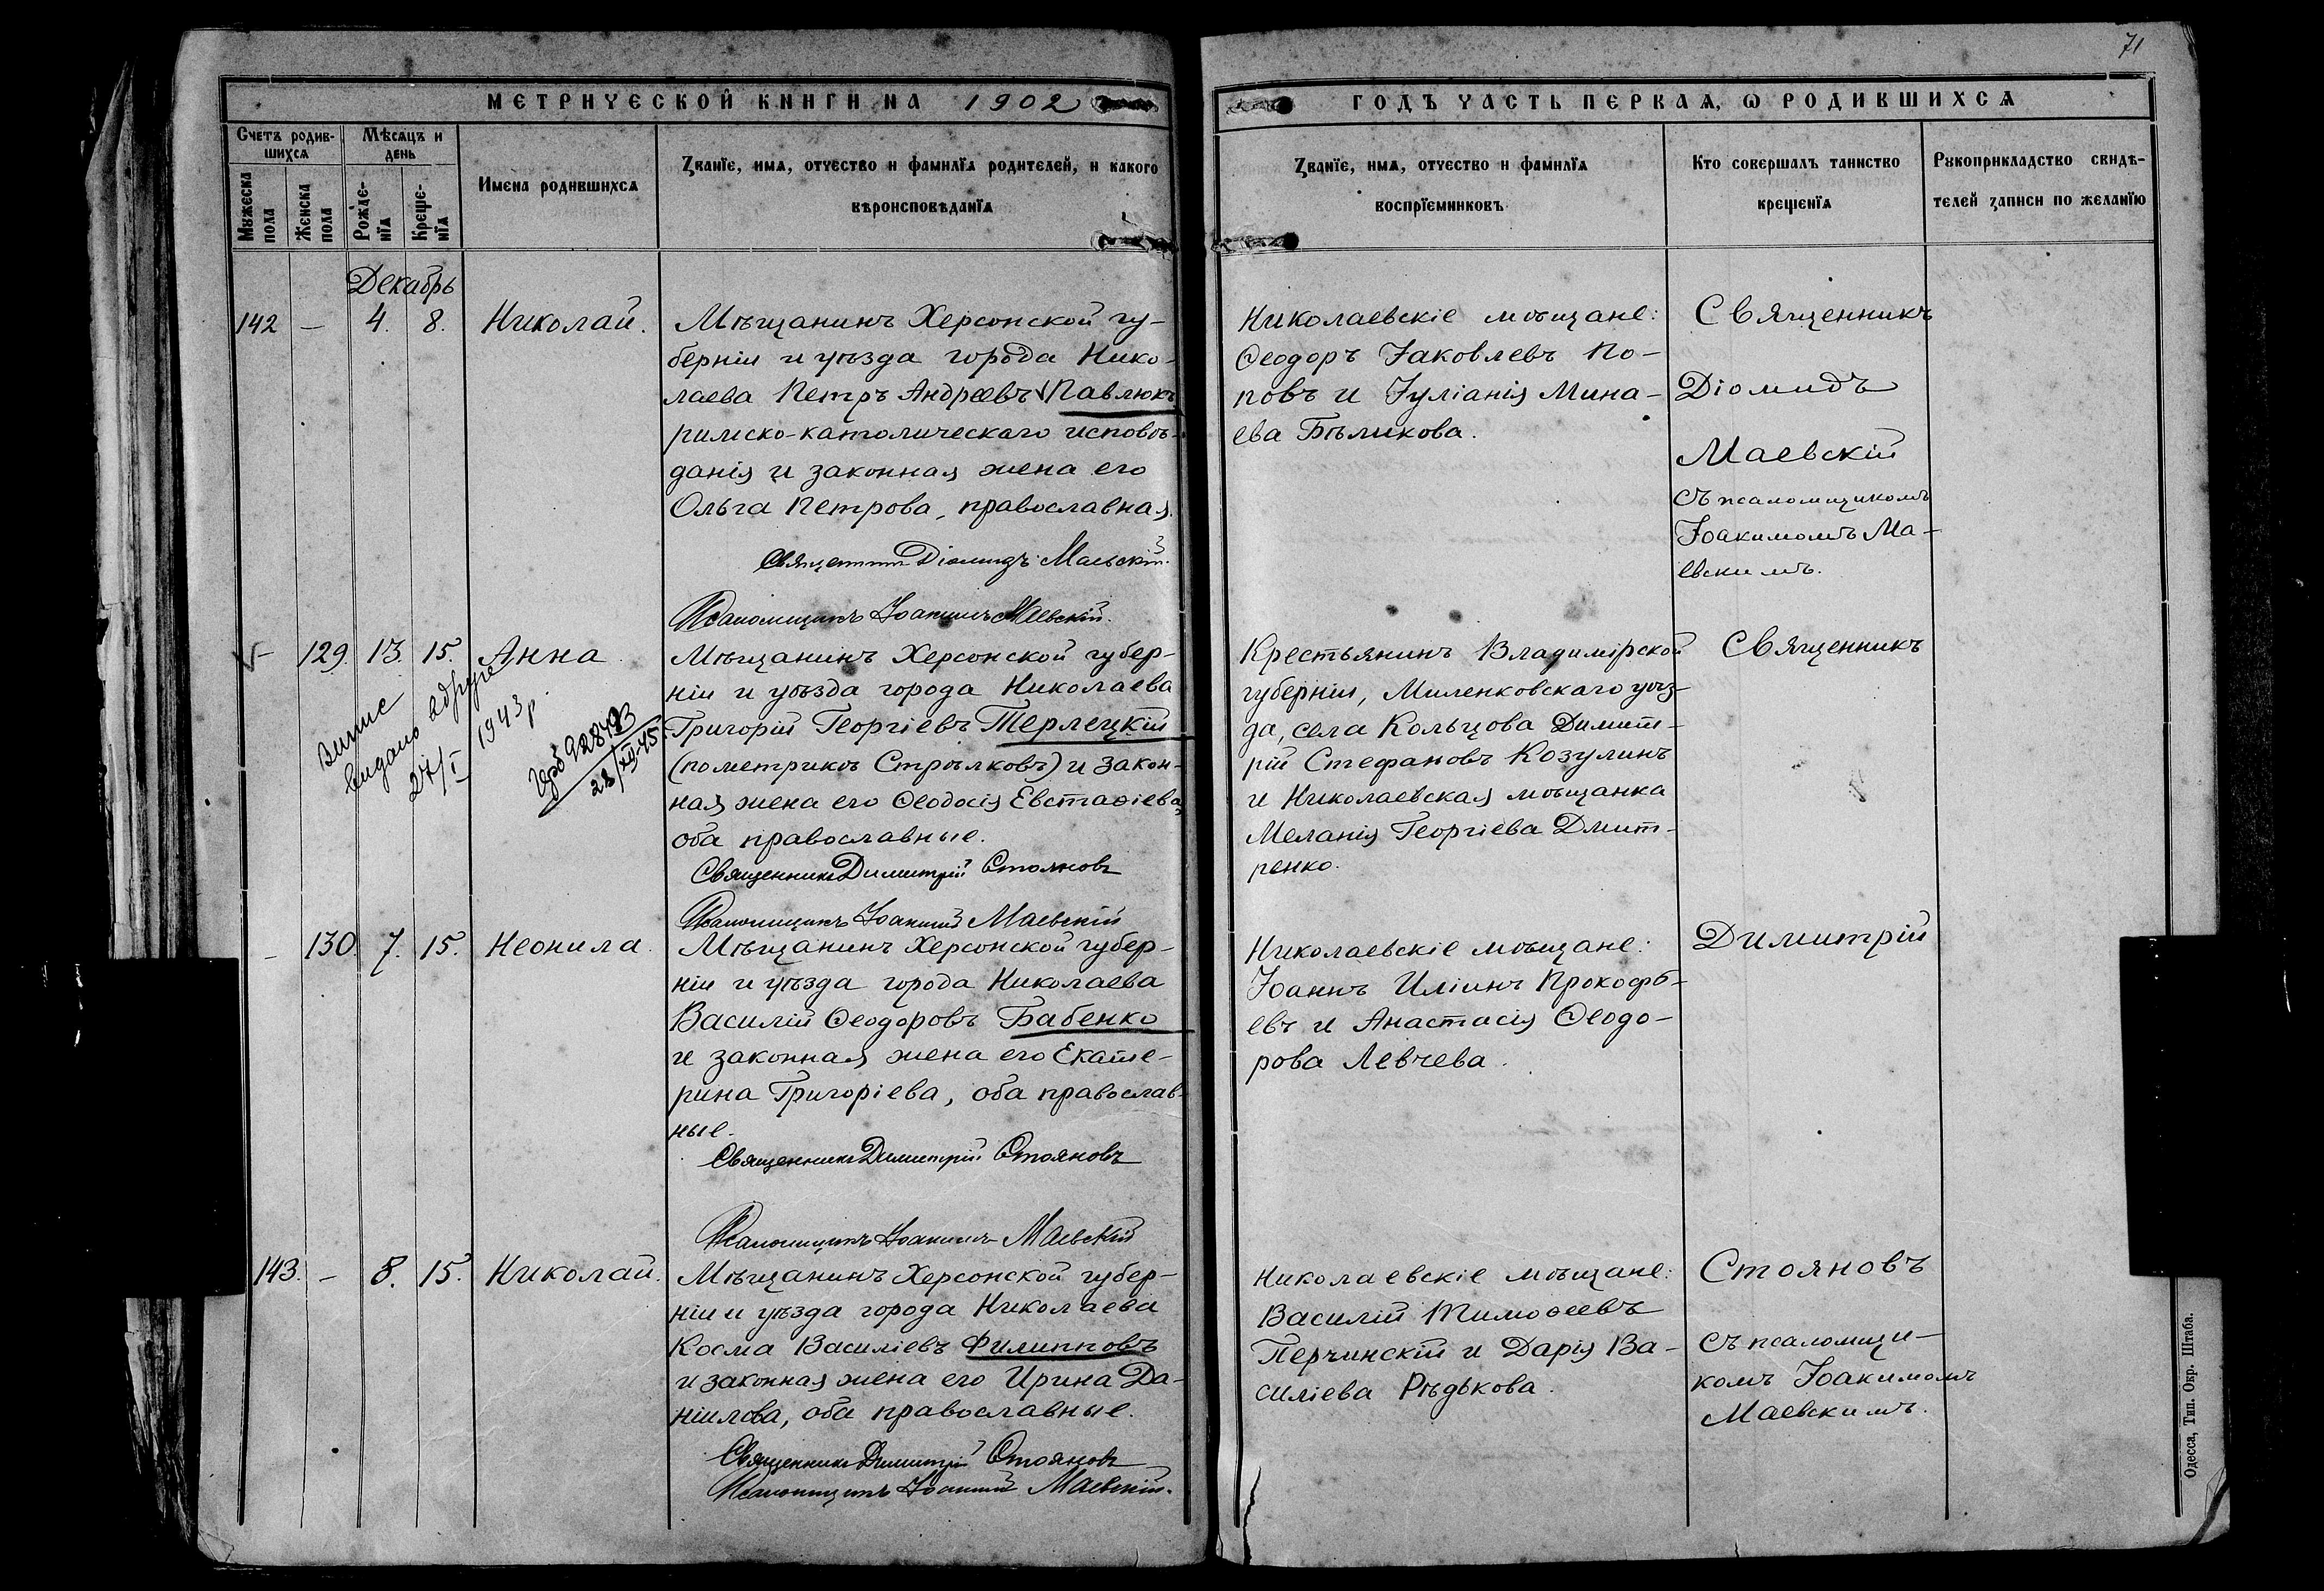 71
МЕТРИЧЕСКОЙ КНИГИ НА 1902
ГОДЪ ЧАСТЬ ПЕРВАЯ, Ѡ РОДИВШИХСЯ
Счетъ родив-
шихся
Мѣсяцъ и
день
Мужеска
пола
Женска
пола
Рожде-
нїя
Креще-
нїя
Имена родившихся
Званїе, имя, отчество и фамилїя родителей, и какого
вѣроисповѣданїя
Званїе, имя, отчество и фамилїя
воспрїемниковъ
Кто совершалъ таинство
крещенїя
Рукоприкладство свидѣ-
телей записи по желанїю
Декабрь
142 – 4. 8. Николай.
Мѣщанинъ Херсонской гу-
берніи и уѣзда города Нико-
лаева Петръ Андреевъ Павлюкъ
римско-католическаго исповѣ-
данія и законная жена его
Ольга Петрова, православная.
Священникъ Діомидъ Маевскій.
Псаломщикъ Іоакимъ Маевскій.
Николаевскіе мѣщане:
Ѳеодоръ Іаковлевъ По-
повъ и Іуліанія Мина-
ева Бѣликова.
Священникъ
Діомидъ
Маевскій
съ псаломщикомъ
Іоакимомъ Ма-
евскимъ.
V 129. 13. 15. Анна
Витис
видано
27/I 1943 р
28/XII-45
Мѣщанинъ Херсонской губер-
ніи и уѣзда города Николаева
Григорій Георгіевъ Терлецкій
(по метрикѣ Стрѣлковъ) и закон-
ная жена его Ѳеодосія Евстаѳіева,
оба православные.
Священникъ Димитрій Стояновъ
Псаломщикъ Іоакимъ Маевскій
Крестьянинъ Владимірской
губерніи, Миленковскаго уѣз-
да, села Кольцова Димит-
рій Стефановъ Козулинъ
и Николаевская мѣщанка
Меланія Георгіева Дмит-
ренко.
Священникъ
– 130. 7. 15. Неонила.
Мѣщанинъ Херсонской губер-
ніи и уѣзда города Николаева
Василій Ѳеодоровъ Бабенко
и законная жена его Екате-
рина Григоріева, оба православ-
ные.
Священникъ Димитрій Стояновъ
Псаломщикъ Іоакимъ Маевскій
Николаевскіе мѣщане:
Іоаннъ Иліинъ Прокофь-
евъ и Анастасія Ѳеодо-
рова Левчева.
Димитрій
143. – 8. 15. Николай.
Мѣщанинъ Херсонской губер-
ніи и уѣзда города Николаева
Косма Василіевъ Филипповъ
и законная жена его Ирина Да-
ніилова, оба православные.
Священникъ Димитрій Стояновъ
Псаломщикъ Іоакимъ Маевскій.
Николаевскіе мѣщане:
Василій Тимоѳеевъ
Перчинскій и Дарія Ва-
силіева Рѣдькова.
Стояновъ
съ псаломщи-
комъ Іоакимомъ
Маевскимъ.
Одесса, Тип. Окр. Штаба.